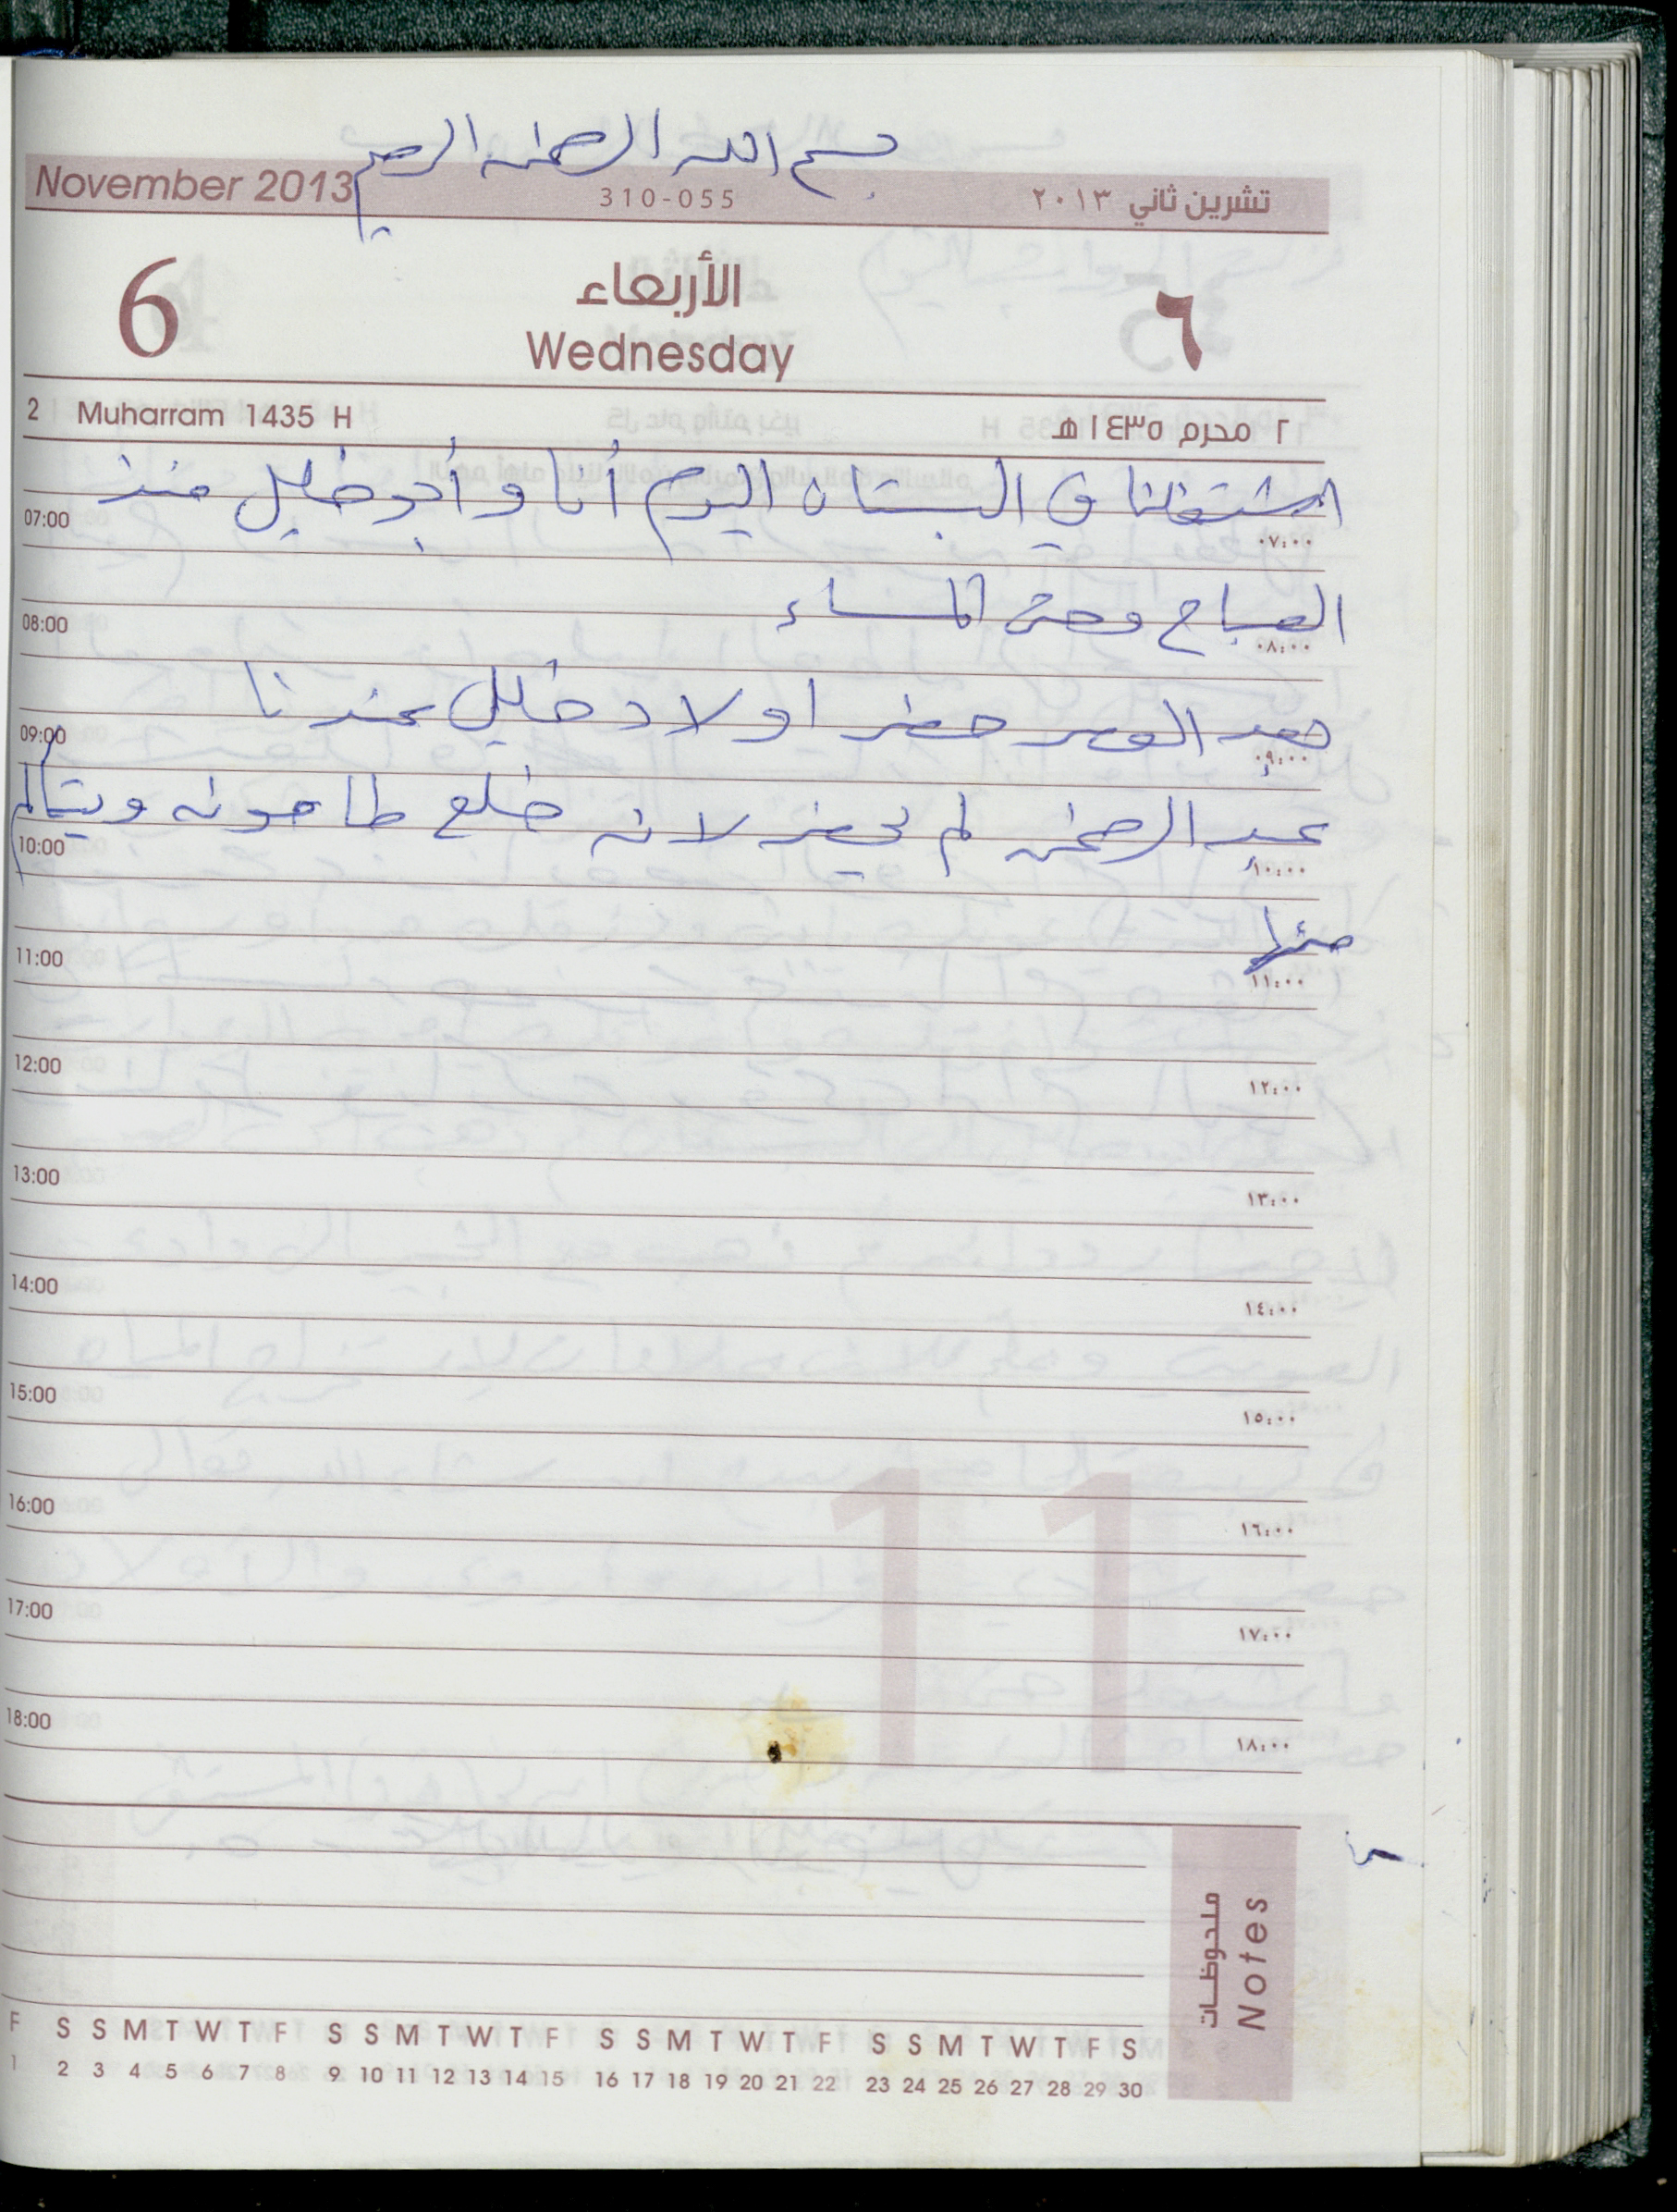 بسم الله الرحمن الرحيم
November 2013 310-055 تشرين ثاني ٢٠١٣
6 الأربعاء ٦
Wednesday
2 Muharram 1435 H ٢ محرم ١٤٣٥ هـ
اشتغلنا في البستان اليوم أنا وأبو خليل منذ
07:00 ٠٧:٠٠
الصباح وحتى المساء
08:00 ٠٨:٠٠
بعد العصر حضر اولاد خليل عندنا
09:00 ٠٩:٠٠
عبد الرحمن لم يحضر لانه خلع طاحونه ويتألم
10:00 ١٠:٠٠
منها
11:00 ١١:٠٠
12:00 ١٢:٠٠
13:00 ١٣:٠٠
14:00 ١٤:٠٠
15:00 ١٥:٠٠
16:00 ١٦:٠٠
17:00 ١٧:٠٠
18:00 ١٨:٠٠
11
ملحوظات
Notes
F S S M T W T F S S M T W T F S S M T W T F S S M T W T F S
1 2 3 4 5 6 7 8 9 10 11 12 13 14 15 16 17 18 19 20 21 22 23 24 25 26 27 28 29 30